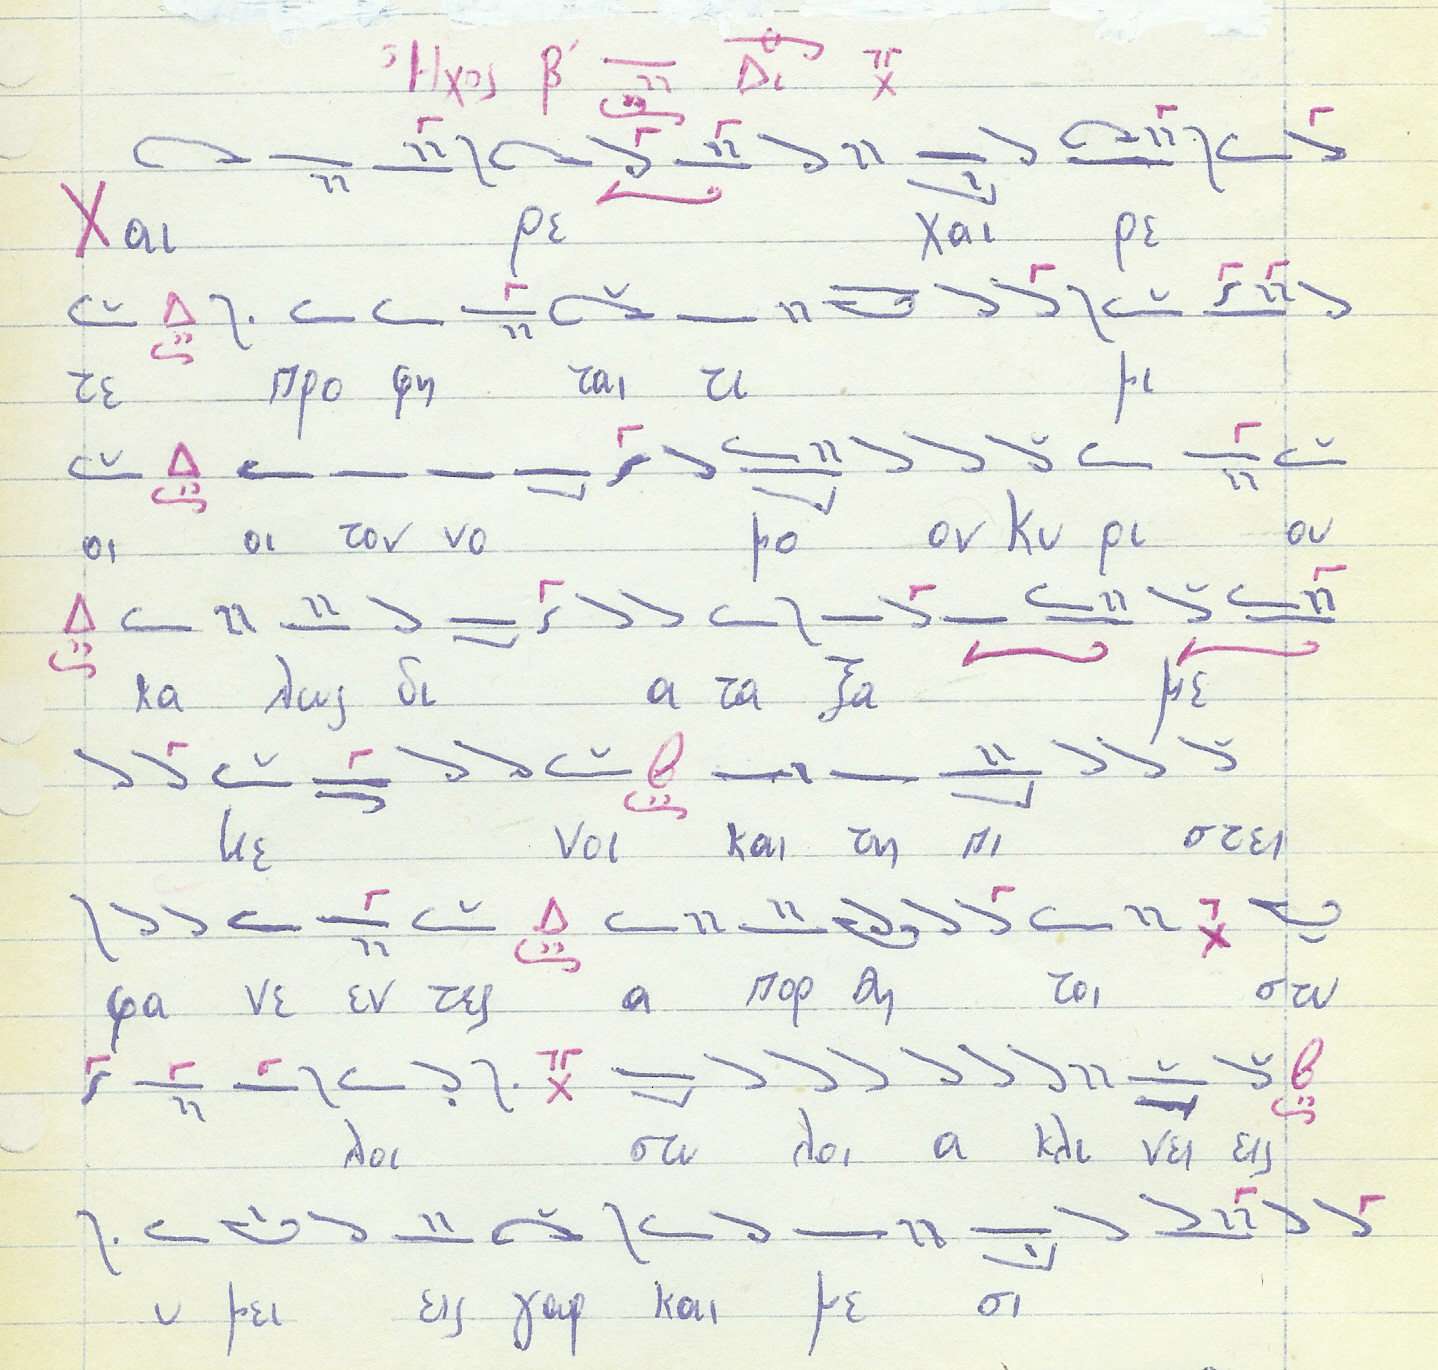 Ἦχος β΄ Δι
Χαι ρε χαι ρε
τε προ φη ται τι μι
οι οι τον νο μο ον Κυ ρι ου
κα λως δι α τα ξα με
με νοι και τη πι στει
φα νε εν τες α πορ θη τοι στυ
λοι στυ λοι α κλι νει εις
υ μει εις γαρ και με σι